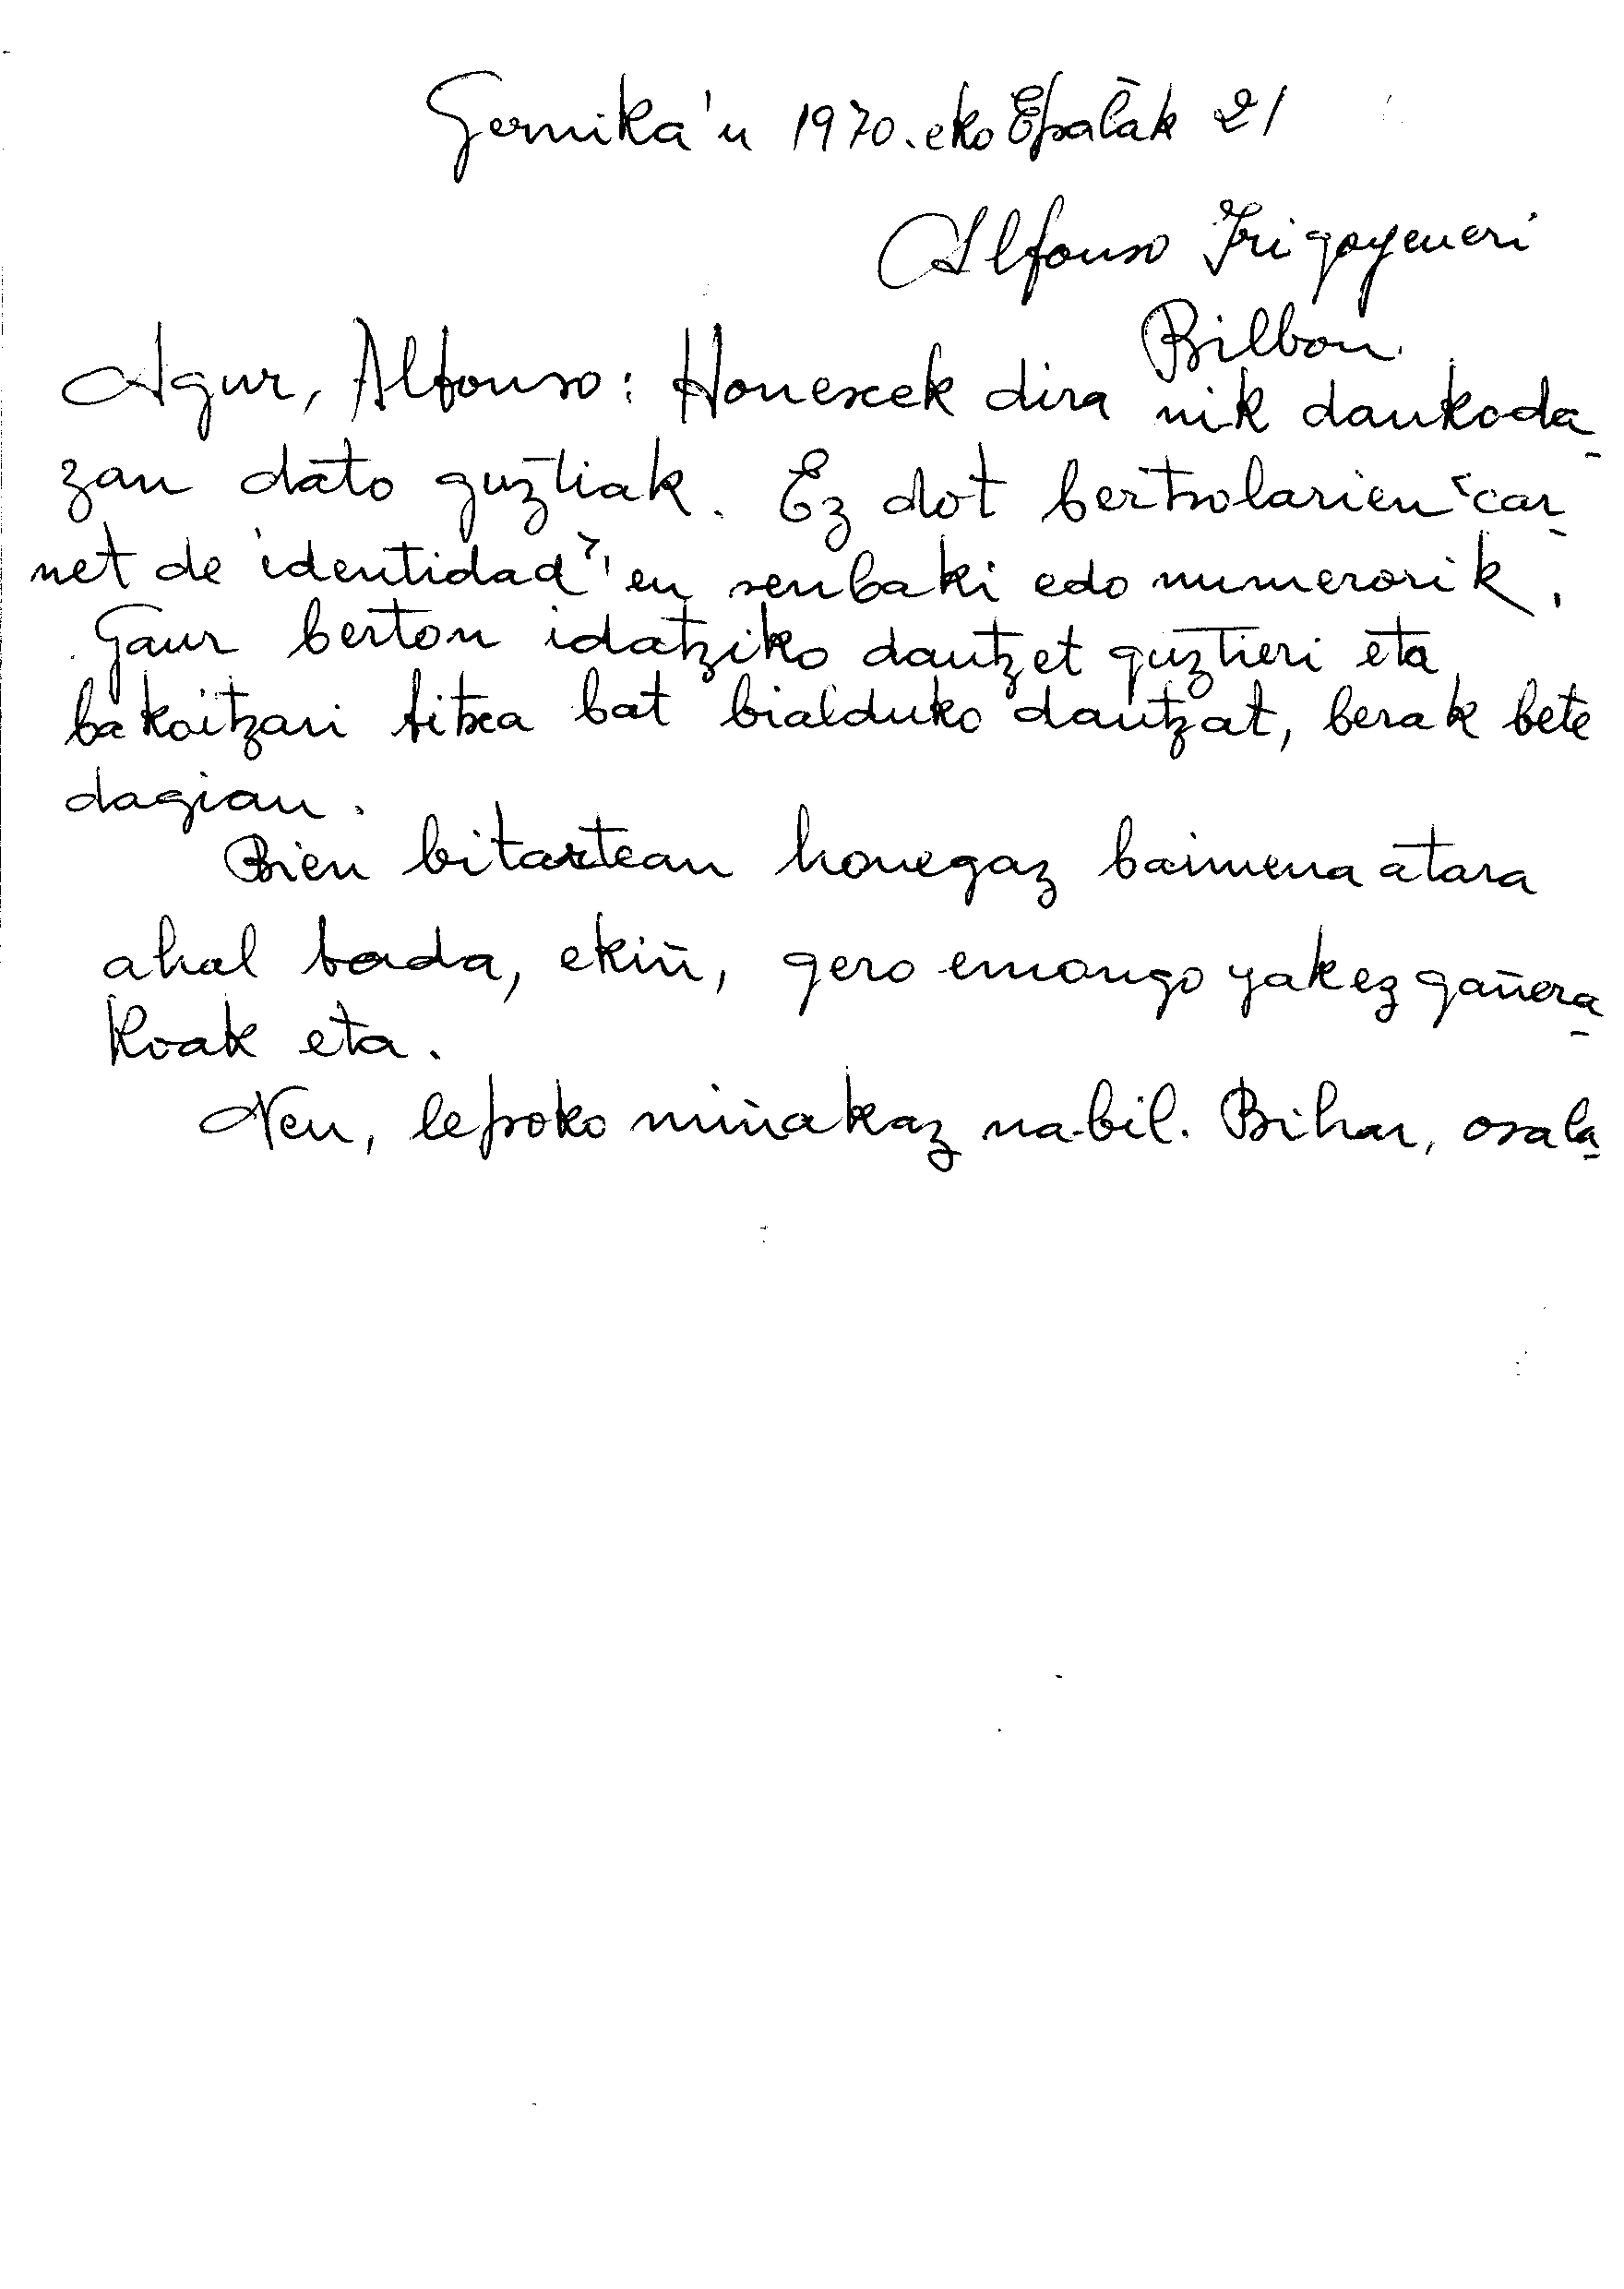 Gernika'n 1970.eko Epaĺak 21
Alfonso Irigoyeneri
Bilbon.
Agur, Alfonso: Honexek dira nik daukoda-
zan dato guztiak. Ez dot bertsolarien "car-
net de identidad"'en senbaki edo numerorik.
Gaur berton idatziko dautzet guztieri eta
bakoitzari fitxa bat bialduko dautzat, berak bete
dagian.
Bien bitartean honegaz baimena atara
ahal bada, ekiñ, gero emongo yakez gañera-
koak eta.
Neu, lepoko miñakaz nabil. Bihar, osala-